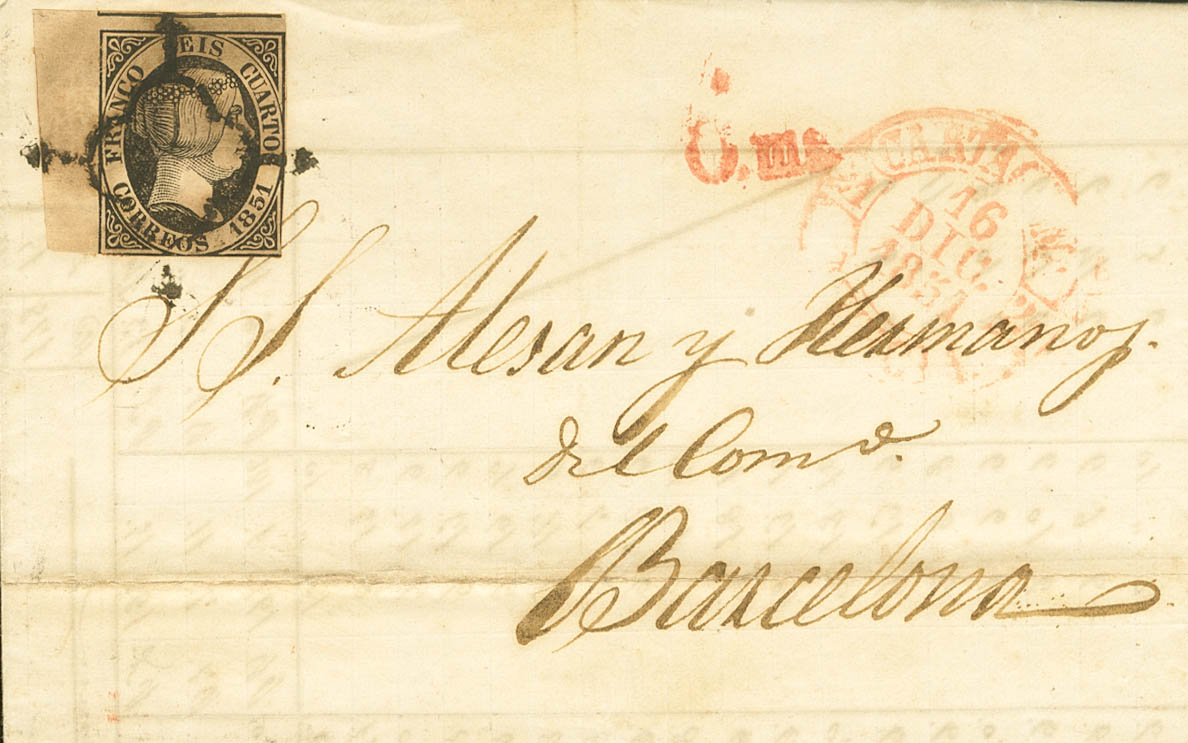 FRANCO SEIS CUARTOS
CORREOS 1851
CARTAG
16
DIC.
1851
S. S. Alesan y Hermanos.
del Com.o
Barcelona